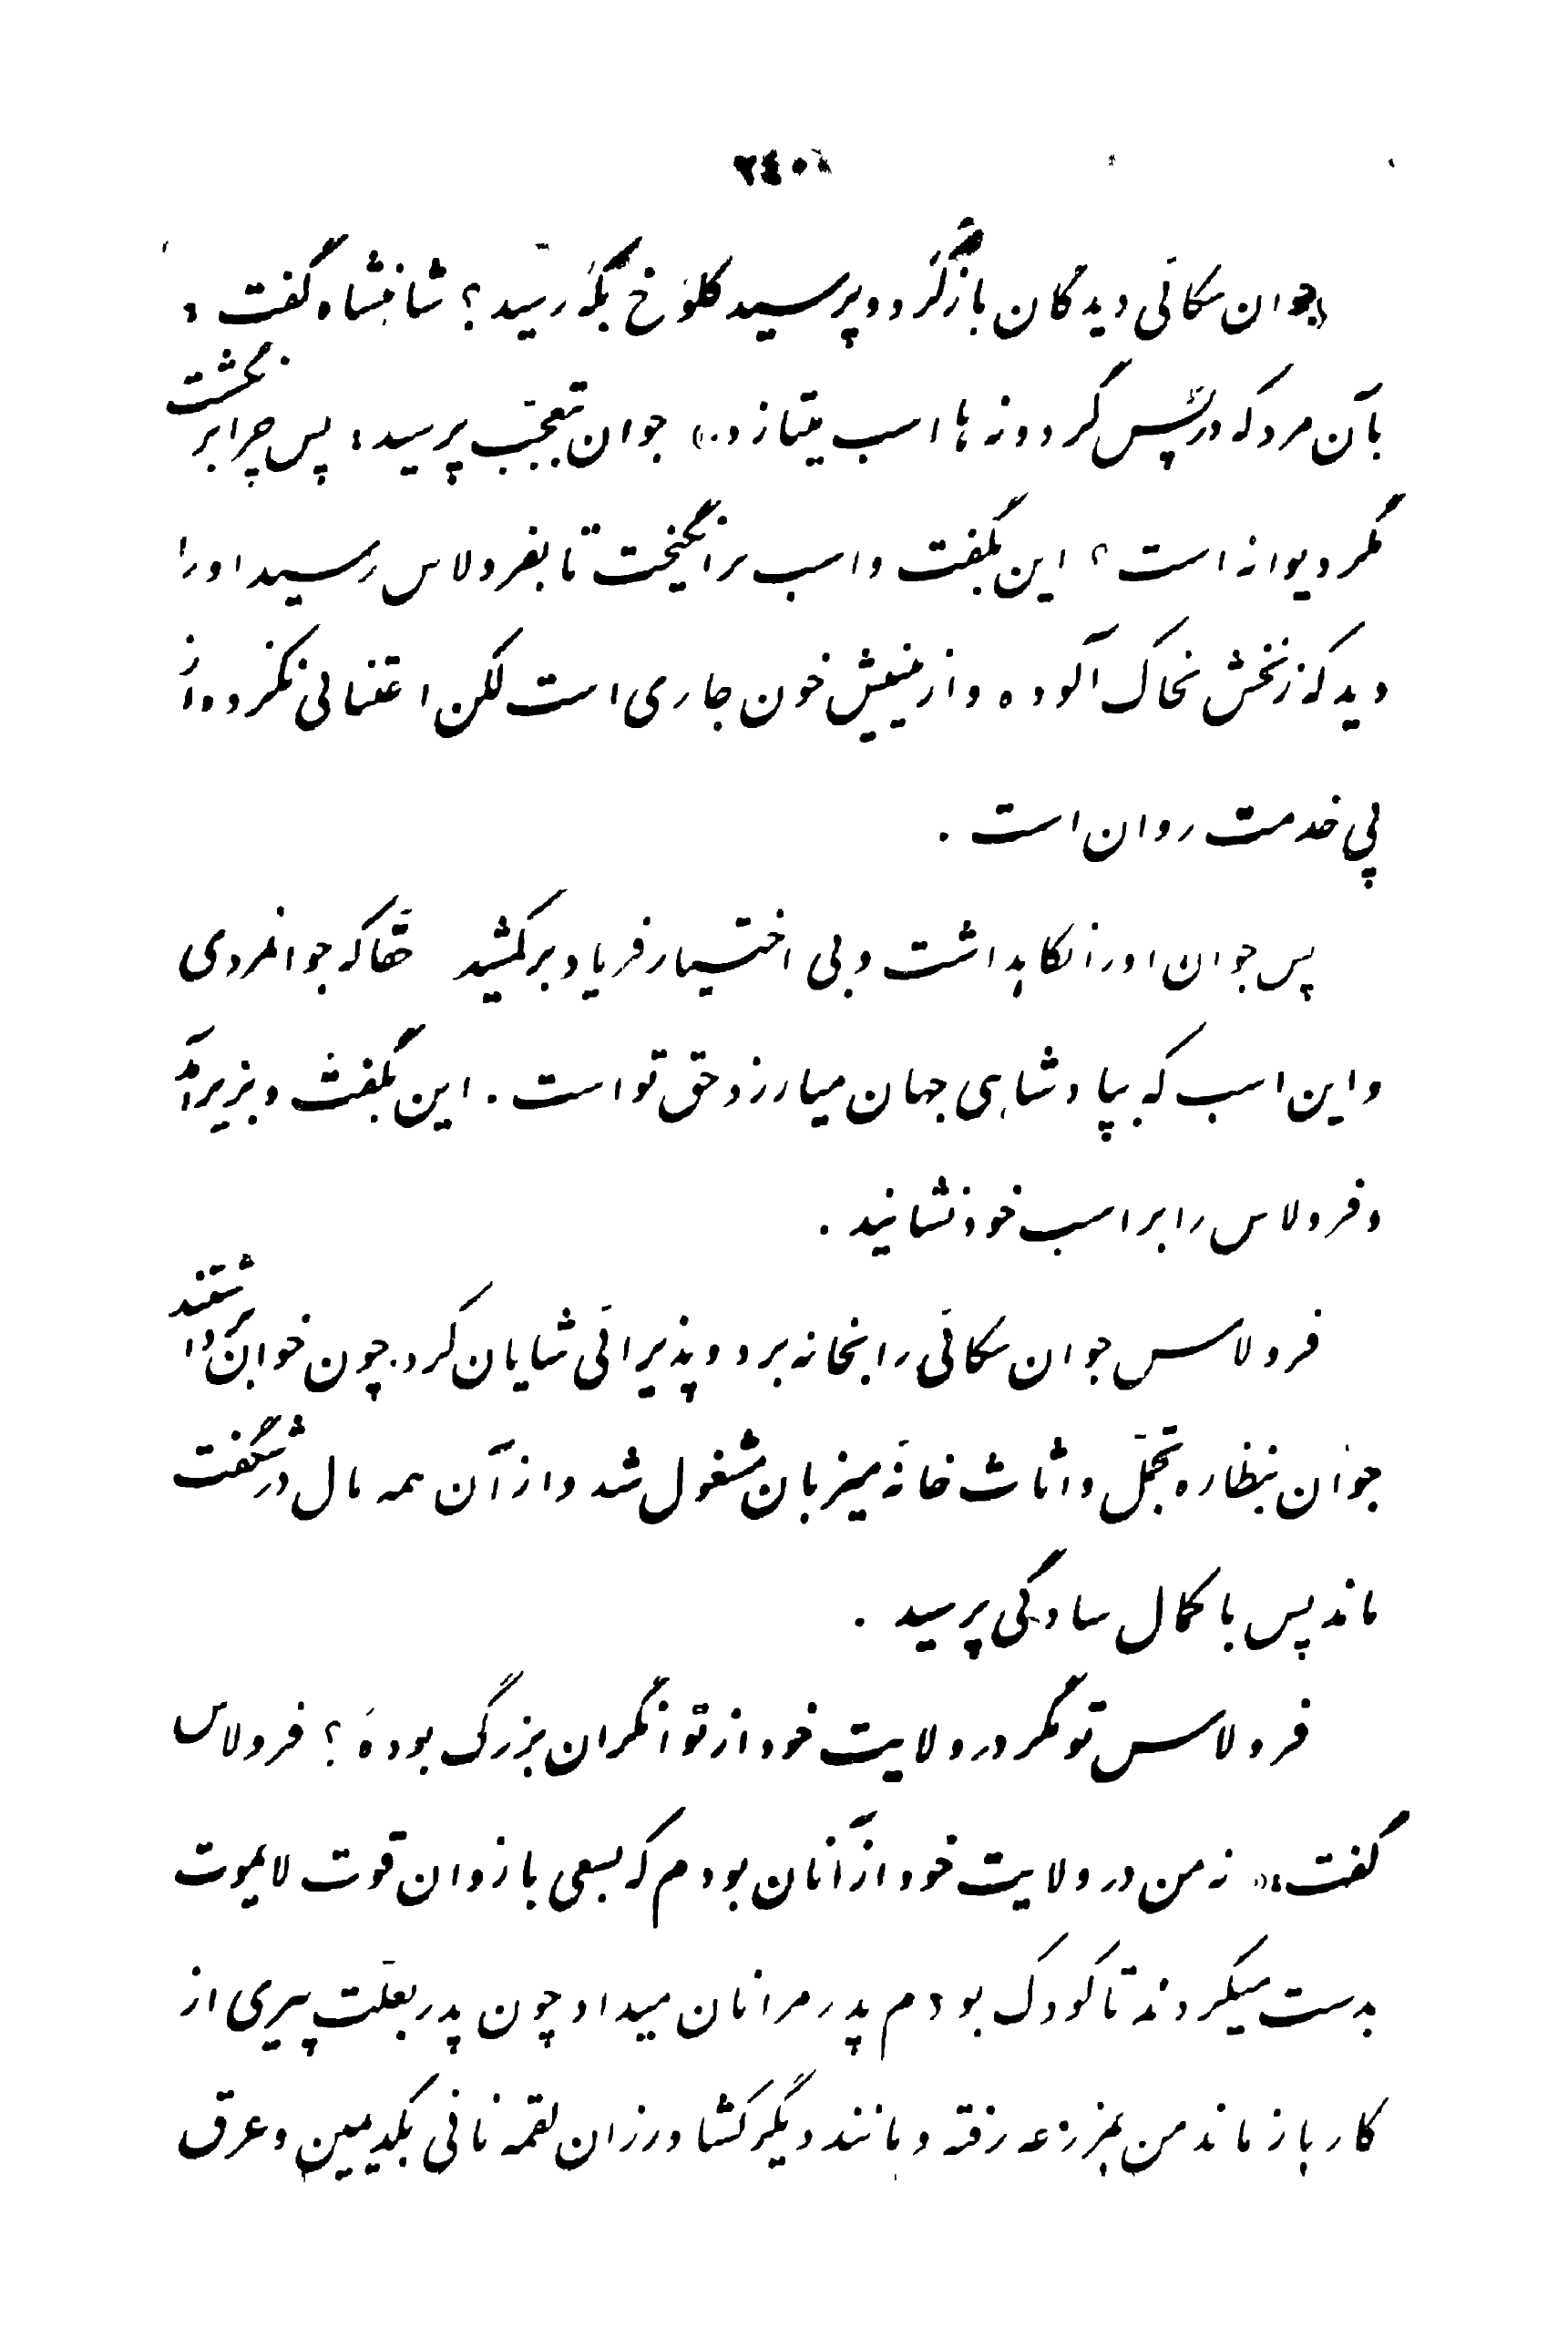 ۲۴۰
جوان سکائی دیدگان باز کرد و پرسید کلوخ بکه رسید؟ شاهنشاه گفت:
بآن مرد که در پس گردونه ها اسب میتازد.» جوان بتعجب پرسید: پس چرا بر نگشت
مگر دیوانه است؟ این بگفت و اسب برانگیخت تا بفرولاس رسید او را
دید که زنخش بخاک آلوده و از بینیش خون جاری است لکن اعتنائی نکرده از
پی خدمت روان است.
پس جوان او را نگاهداشت و بی اختیار فریاد برکشید حقا که جوانمردی
و این اسب که بپادشاهی جهان میارزد حق تو است. این بگفت و بزیر آمد
و فرولاس را بر اسب خود نشانید.
فرولاس جوان سکائی را بخانه برد و پذیرائی شایان کرد. چون خوان برداشتند
جوان بنظاره تجمل و اثاث خانهٔ میزبان مشغول شد و از آن همه مال در شگفت
ماند پس با کمال سادگی پرسید.
فرولاس تو مگر در ولایت خود از توانگران بزرگ بودهٔ؟ فرولاس
گفت: «نه من در ولایت خود از آنان بودم که بسعی بازوان قوت لایموت
بدست میکردند تا کودک بودم پدر مرا نان میداد چون پدر بعلت پیری از
کار باز ماند من بمزرعه رفته و مانند دیگر کشاورزان لقمه نانی بکد یمین و عرق